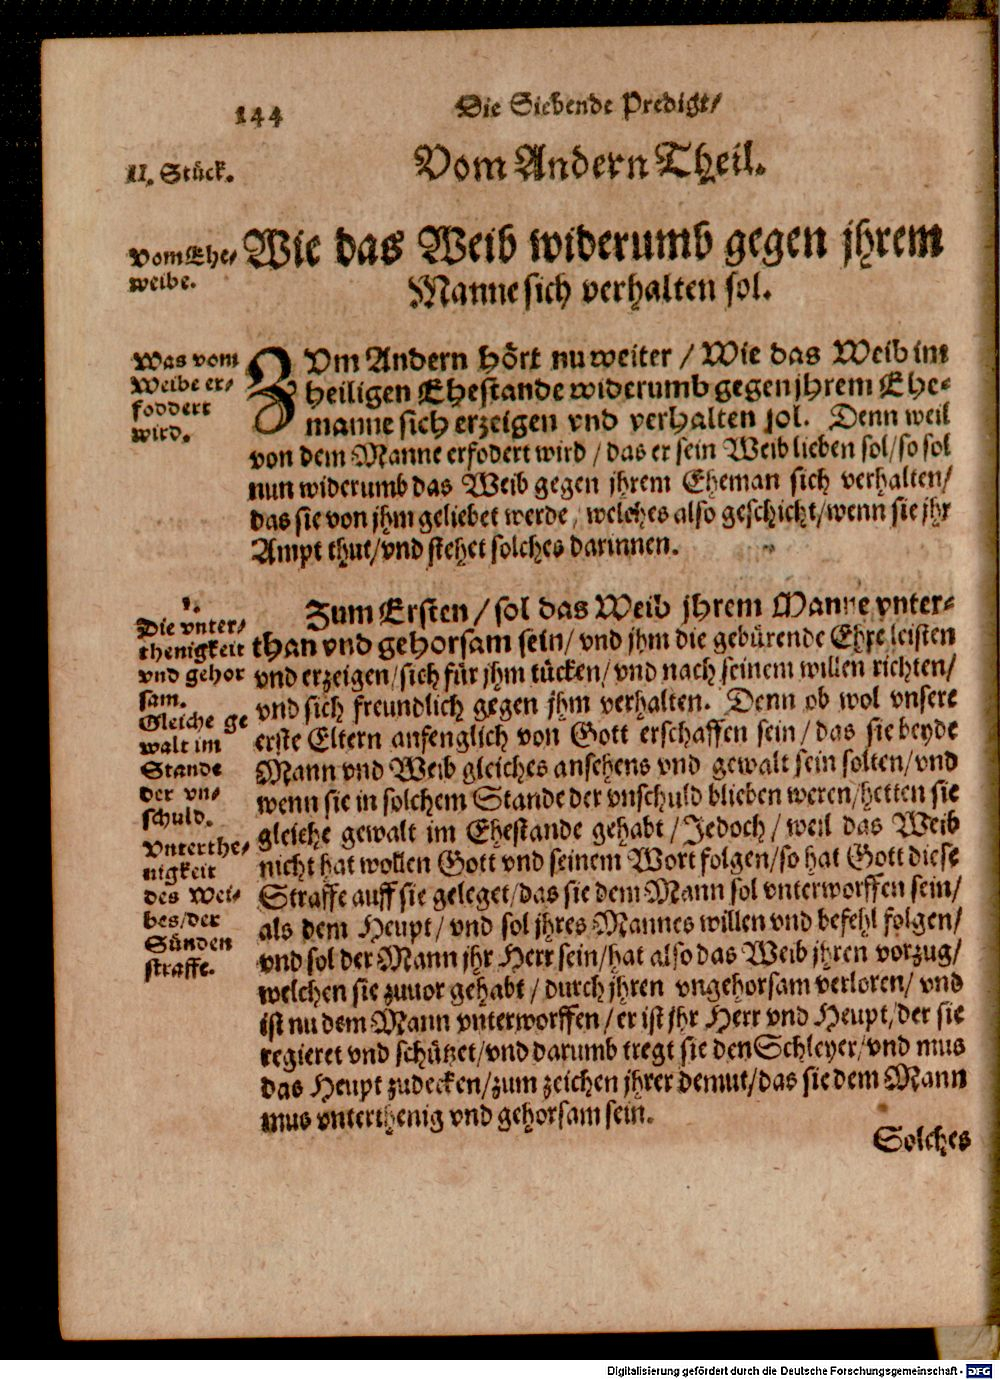 144
Die Siebende Predigt/
II. Stück.
Vom Andern Theil.
Vom Ehe/
weibe.
Wie das Weib widerumb gegen jhrem
Manne sich verhalten sol.
Was vom
Weibe er/
foddert
wird.
ZVm Andern hört nu weiter / Wie das Weib im
heiligen Ehestande widerumb gegen jhrem Ehe-
manne sich erzeigen vnd verhalten sol. Denn weil
von dem Manne erfodert wird / das er sein Weib lieben sol/so sol
nun widerumb das Weib gegen jhrem Eheman sich verhalten/
das sie von jhm geliebet werde, welches also geschicht/wenn sie jhr
Ampt thut/vnd stehet solches darinnen.
1.
Die vnter/
thenigkeit
vnd gehor
sam.
Gleiche ge
walt im
Stande
der vn/
schuld.
Vnterthe/
nigkeit
des Wei-
bes/der
Sünden
straffe.
Zum Ersten / sol das Weib jhrem Manne vnter-
than vnd gehorsam sein/ vnd jhm die gebürende Ehre leisten
vnd erzeigen/sich für jhm tücken/vnd nach seinem willen richten/
vnd sich freundlich gegen jhm verhalten. Denn ob wol vnsere
erste Eltern anfenglich von Gott erschaffen sein / das sie beyde
Mann vnd Weib gleiches ansehens vnd gewalt sein solten/vnd
wenn sie in solchem Stande der vnschuld blieben weren/hetten sie
gleiche gewalt im Ehestande gehabt / Jedoch / weil das Weib
nicht hat wollen Gott vnd seinem Wort folgen/so hat Gott diese
Straffe auff sie geleget/das sie dem Mann sol vnterworffen sein/
als dem Heupt / vnd sol jhres Mannes willen vnd befehl folgen/
vnd sol der Mann jhr Herr sein/hat also das Weib jhren vorzug/
welchen sie zuuor gehabt / durch jhren vngehorsam verloren/ vnd
ist nu dem Mann vnterworffen / er ist jhr Herr vnd Heupt/der sie
regieret vnd schützet/vnd darumb tregt sie den Schleyer/vnd mus
das Heupt zudecken/zum zeichen jhrer demut/das sie dem Mann
mus vnterthenig vnd gehorsam sein.
Solches
Digitalisierung gefördert durch die Deutsche Forschungsgemeinschaft - DFG